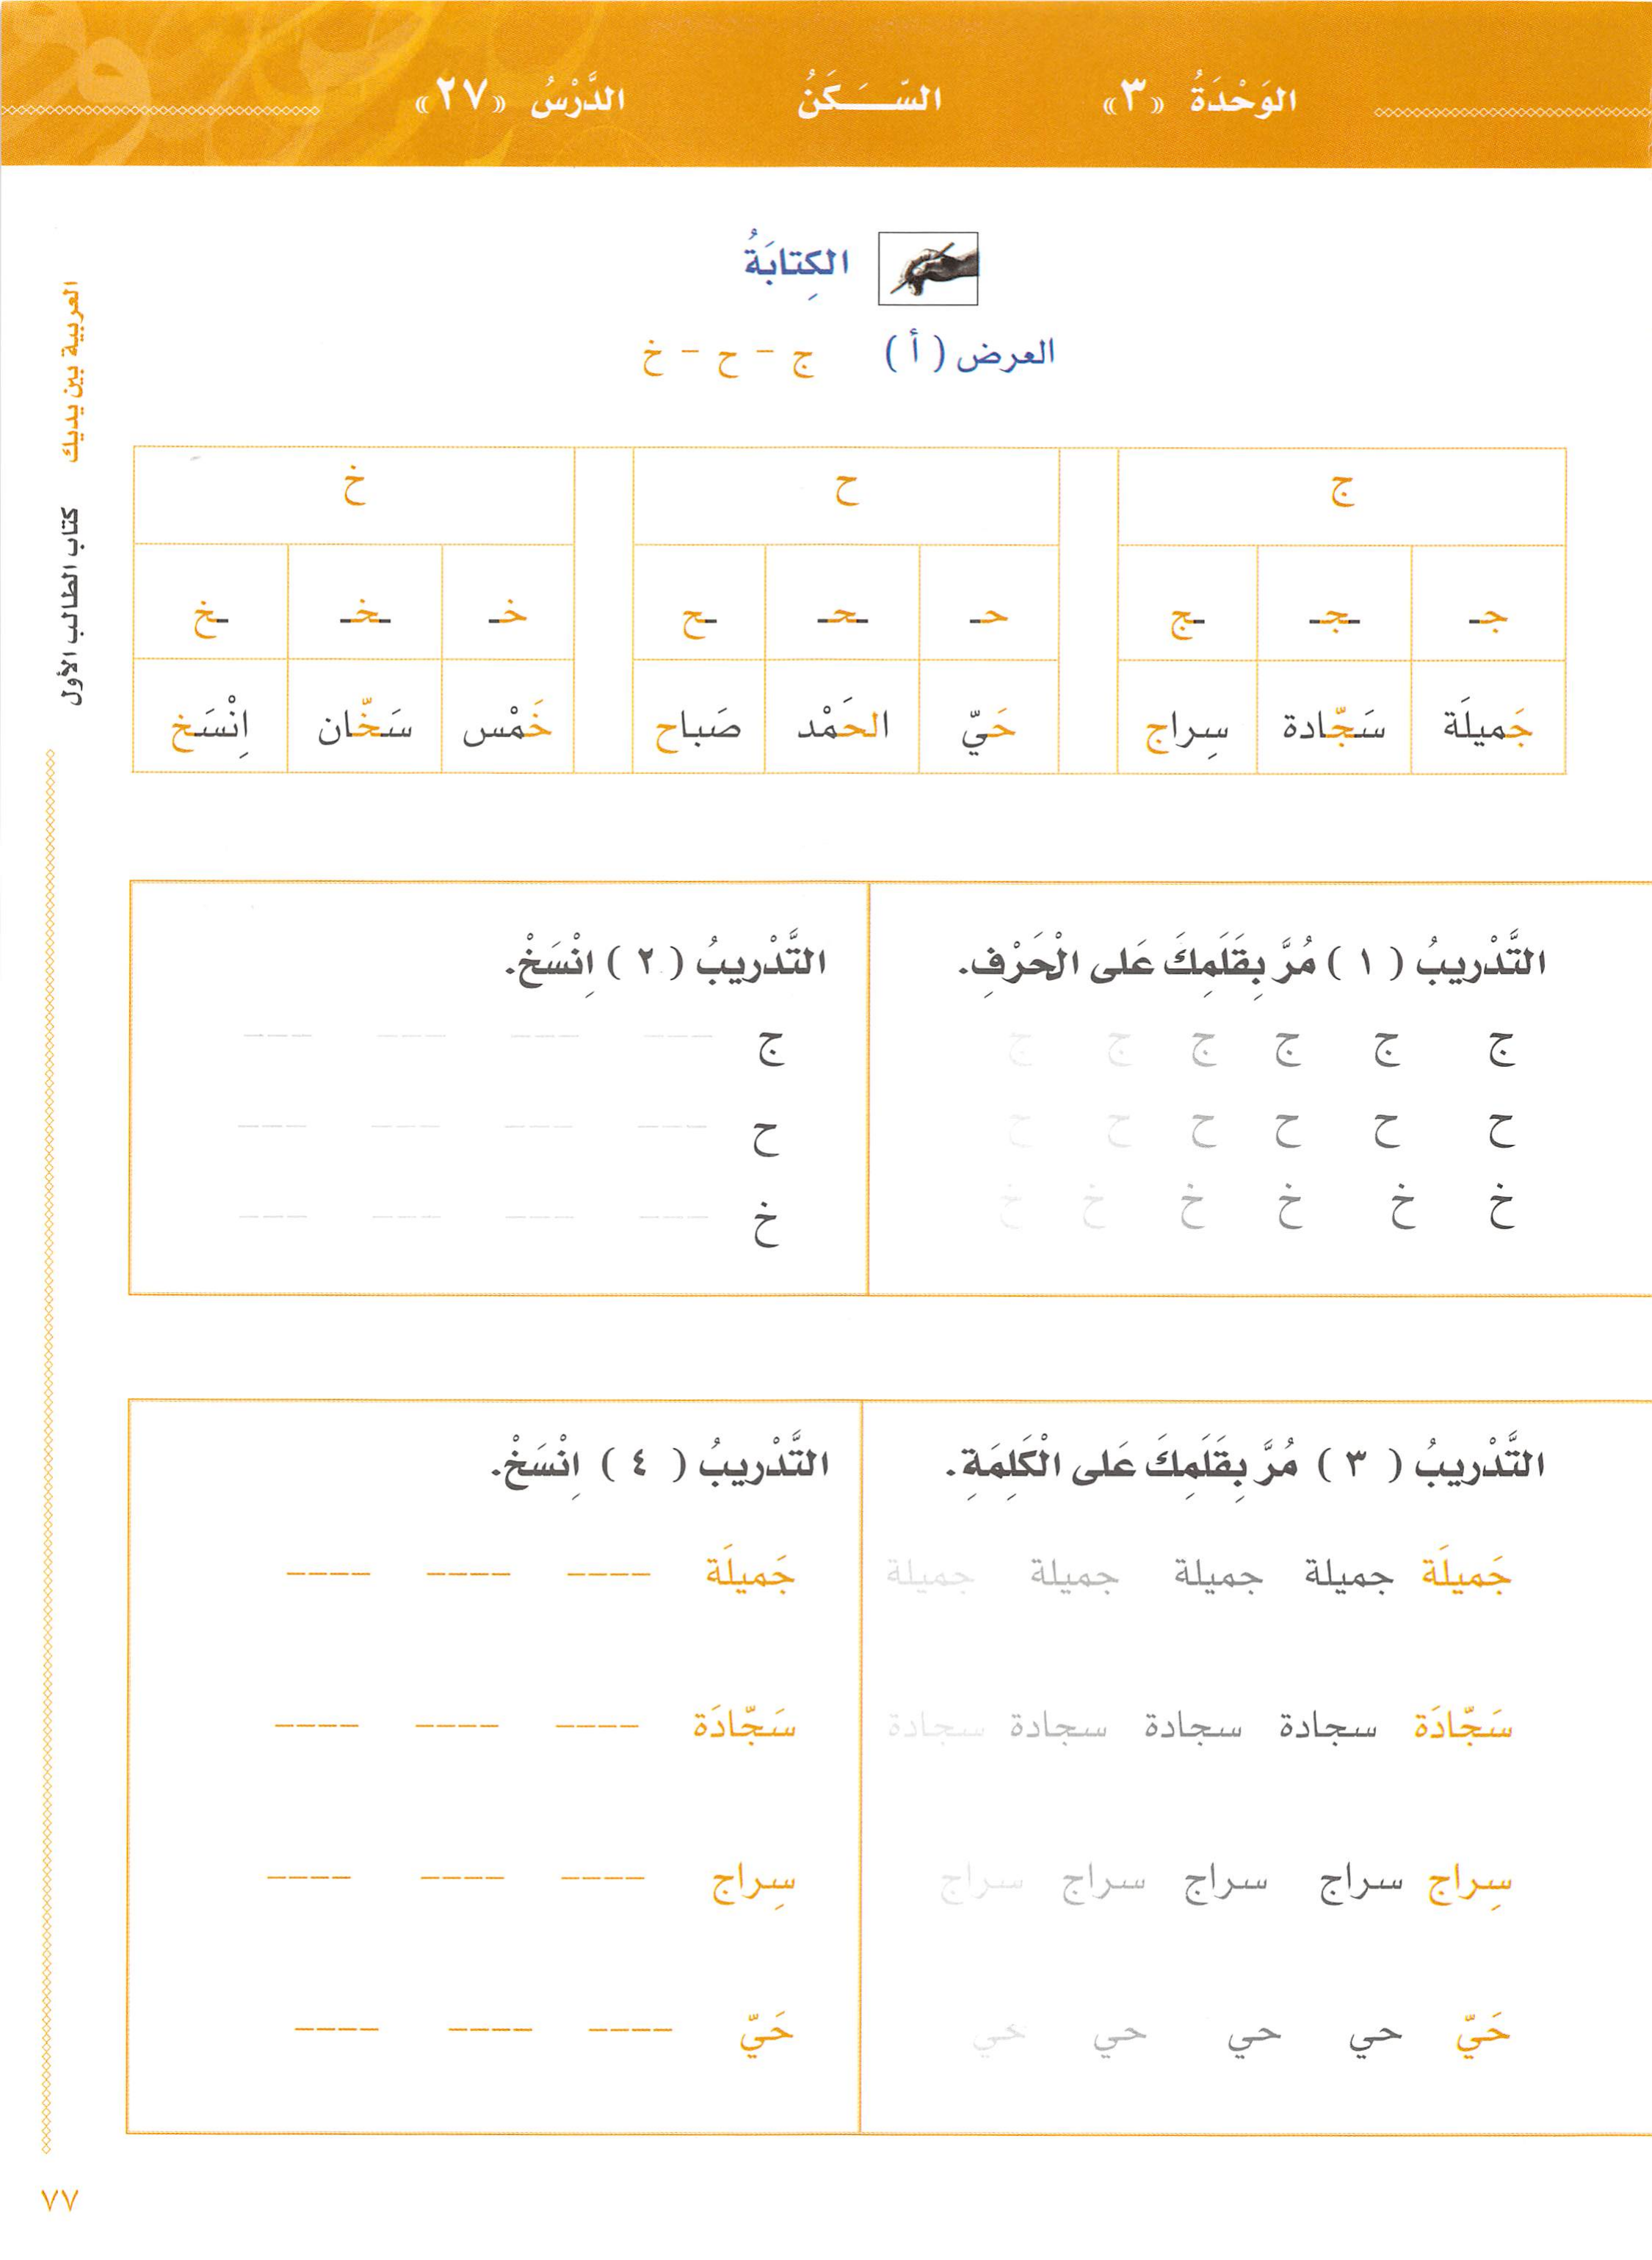 الوَحْدَةُ «٣» السّـــَـكَنُ الدَّرْسُ «٢٧»
الكِتابَةُ
العرض ( أ ) ج - ح - خ
ج ح خ
جـ ـجـ ـج حـ ـحـ ـح خـ ـخـ ـخ
جَميلَة سَجّادة سِراج حَيّ الحَمْد صَباح خَمْس سَخّان اِنْسَخ
التَّدْريبُ ( ١ ) مُرَّ بِقَلَمِكَ عَلى الْحَرْفِ.
ج ج ج ج ج ج
ح ح ح ح ح ح
خ خ خ خ خ خ
التَّدْريبُ ( ٢ ) اِنْسَخْ.
ج --- --- --- ---
ح --- --- --- ---
خ --- --- --- ---
التَّدْريبُ ( ٣ ) مُرَّ بِقَلَمِكَ عَلى الْكَلِمَةِ.
جَميلَة جميلة جميلة جميلة جميلة
سَجّادَة سجادة سجادة سجادة سجادة
سِراج سراج سراج سراج سراج
حَيّ حي حي حي حي
التَّدْريبُ ( ٤ ) اِنْسَخْ.
جَميلَة ---- ---- ----
سَجّادَة ---- ---- ----
سِراج ---- ---- ----
حَيّ ---- ---- ----
العربية بين يديك كتاب الطالب الأول
٧٧